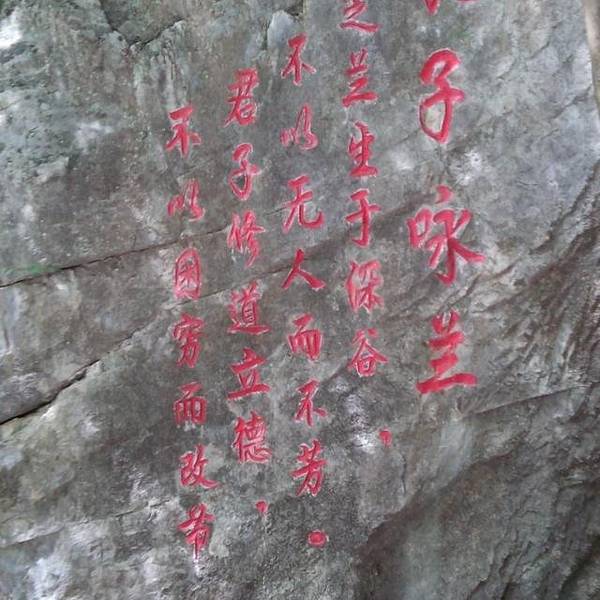 子咏兰
芝兰生于深谷，
不以无人而不芳。
君子修道立德，
不以困穷而改节